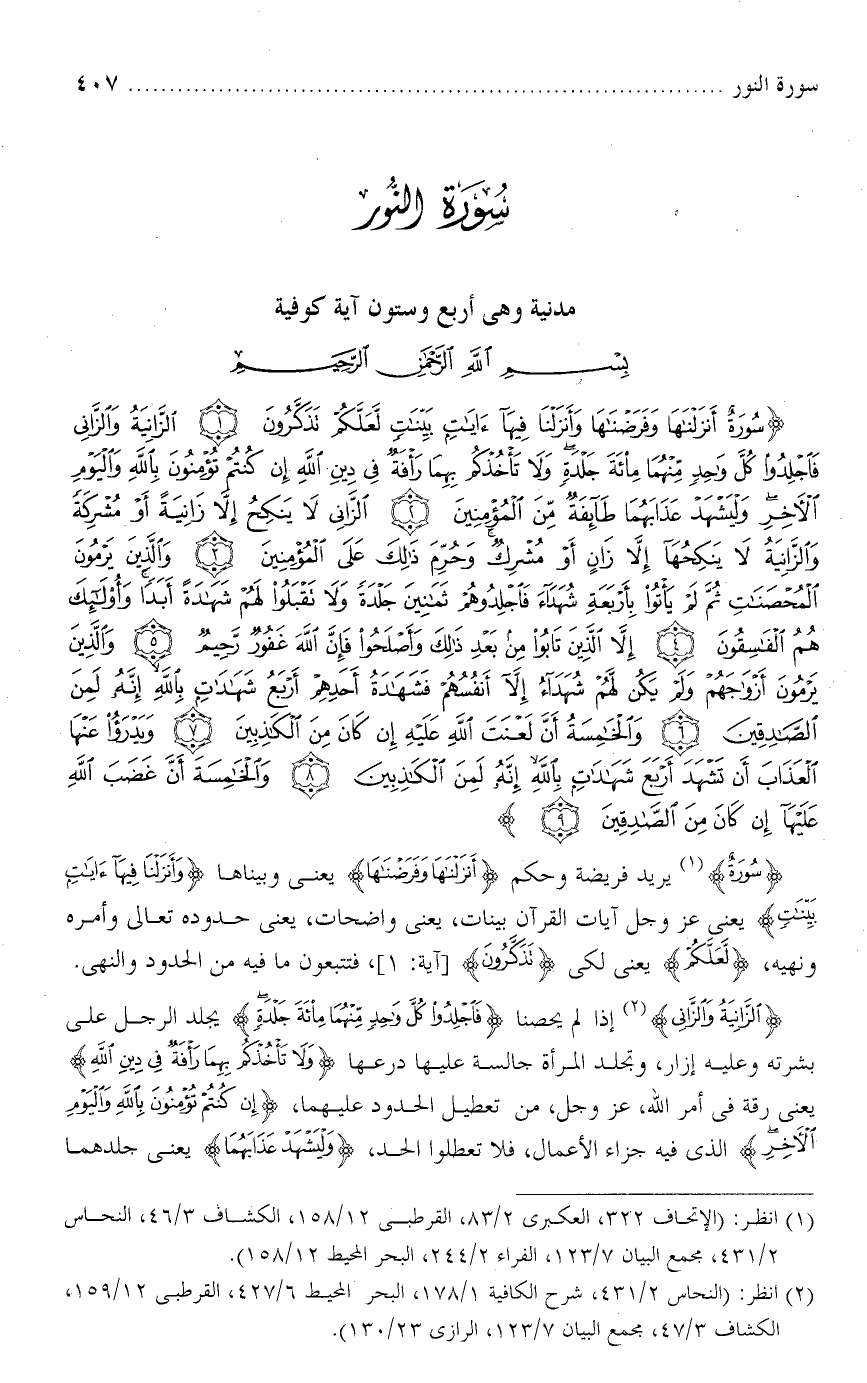 سورة النور ........................................................................ ٤٠٧
سُورَةُ النُّورِ
مدنية وهى أربع وستون آية كوفية
بِسْمِ اللَّهِ الرَّحْمَٰنِ الرَّحِيمِ
﴿سُورَةٌ أَنزَلْنَٰهَا وَفَرَضْنَٰهَا وَأَنزَلْنَا فِيهَآ ءَايَٰتٍۭ بَيِّنَٰتٍ لَّعَلَّكُمْ تَذَكَّرُونَ ١ ٱلزَّانِيَةُ وَٱلزَّانِى
فَٱجْلِدُوا۟ كُلَّ وَٰحِدٍ مِّنْهُمَا مِا۟ئَةَ جَلْدَةٍ ۖ وَلَا تَأْخُذْكُم بِهِمَا رَأْفَةٌ فِى دِينِ ٱللَّهِ إِن كُنتُمْ تُؤْمِنُونَ بِٱللَّهِ وَٱلْيَوْمِ
ٱلْءَاخِرِ ۖ وَلْيَشْهَدْ عَذَابَهُمَا طَآئِفَةٌ مِّنَ ٱلْمُؤْمِنِينَ ٢ ٱلزَّانِى لَا يَنكِحُ إِلَّا زَانِيَةً أَوْ مُشْرِكَةً
وَٱلزَّانِيَةُ لَا يَنكِحُهَآ إِلَّا زَانٍ أَوْ مُشْرِكٌ ۚ وَحُرِّمَ ذَٰلِكَ عَلَى ٱلْمُؤْمِنِينَ ٣ وَٱلَّذِينَ يَرْمُونَ
ٱلْمُحْصَنَٰتِ ثُمَّ لَمْ يَأْتُوا۟ بِأَرْبَعَةِ شُهَدَآءَ فَٱجْلِدُوهُمْ ثَمَٰنِينَ جَلْدَةً وَلَا تَقْبَلُوا۟ لَهُمْ شَهَٰدَةً أَبَدًا ۚ وَأُو۟لَٰٓئِكَ
هُمُ ٱلْفَٰسِقُونَ ٤ إِلَّا ٱلَّذِينَ تَابُوا۟ مِنۢ بَعْدِ ذَٰلِكَ وَأَصْلَحُوا۟ فَإِنَّ ٱللَّهَ غَفُورٌ رَّحِيمٌ ٥ وَٱلَّذِينَ
يَرْمُونَ أَزْوَٰجَهُمْ وَلَمْ يَكُن لَّهُمْ شُهَدَآءُ إِلَّآ أَنفُسُهُمْ فَشَهَٰدَةُ أَحَدِهِمْ أَرْبَعُ شَهَٰدَٰتٍۭ بِٱللَّهِ ۙ إِنَّهُۥ لَمِنَ
ٱلصَّٰدِقِينَ ٦ وَٱلْخَٰمِسَةُ أَنَّ لَعْنَتَ ٱللَّهِ عَلَيْهِ إِن كَانَ مِنَ ٱلْكَٰذِبِينَ ٧ وَيَدْرَؤُا۟ عَنْهَا
ٱلْعَذَابَ أَن تَشْهَدَ أَرْبَعَ شَهَٰدَٰتٍۭ بِٱللَّهِ ۙ إِنَّهُۥ لَمِنَ ٱلْكَٰذِبِينَ ٨ وَٱلْخَٰمِسَةَ أَنَّ غَضَبَ ٱللَّهِ
عَلَيْهَآ إِن كَانَ مِنَ ٱلصَّٰدِقِينَ ٩ ﴾
﴿سُورَةٌ﴾(١) يريد فريضة وحكم ﴿أَنزَلْنَٰهَا وَفَرَضْنَٰهَا﴾ يعنى وبيناها ﴿وَأَنزَلْنَا فِيهَآ ءَايَٰتٍۭ
بَيِّنَٰتٍ﴾ يعنى عز وجل آيات القرآن بينات، يعنى واضحات، يعنى حدوده تعالى وأمره
ونهيه، ﴿لَّعَلَّكُمْ﴾ يعنى لكى ﴿تَذَكَّرُونَ﴾ [آية: ١]، فتتبعون ما فيه من الحدود والنهى.
﴿ٱلزَّانِيَةُ وَٱلزَّانِى﴾(٢) إذا لم يحصنا ﴿فَٱجْلِدُوا۟ كُلَّ وَٰحِدٍ مِّنْهُمَا مِا۟ئَةَ جَلْدَةٍ ۖ﴾ يجلد الرجل على
بشرته وعليه إزار، وتجلد المرأة جالسة عليها درعها ﴿وَلَا تَأْخُذْكُم بِهِمَا رَأْفَةٌ فِى دِينِ ٱللَّهِ﴾
يعنى رقة فى أمر الله، عز وجل، من تعطيل الحدود عليهما، ﴿إِن كُنتُمْ تُؤْمِنُونَ بِٱللَّهِ وَٱلْيَوْمِ
ٱلْءَاخِرِ ۖ﴾ الذى فيه جزاء الأعمال، فلا تعطلوا الحد، ﴿وَلْيَشْهَدْ عَذَابَهُمَا﴾ يعنى جلدهما
(١) انظر: (الإتحاف ٣٢٢، العكبرى ٨٣/٢، القرطبى ١٥٨/١٢، الكشاف ٤٦/٣، النحاس
٤٣١/٢، مجمع البيان ١٢٣/٧، الفراء ٢٤٤/٢، البحر المحيط ١٥٨/١٢).
(٢) انظر: (النحاس ٤٣١/٢، شرح الكافية ١٧٨/١، البحر المحيط ٤٢٧/٦، القرطبى ١٥٩/١٢،
الكشاف ٤٧/٣، مجمع البيان ١٢٣/٧، الرازى ١٣٠/٢٣).